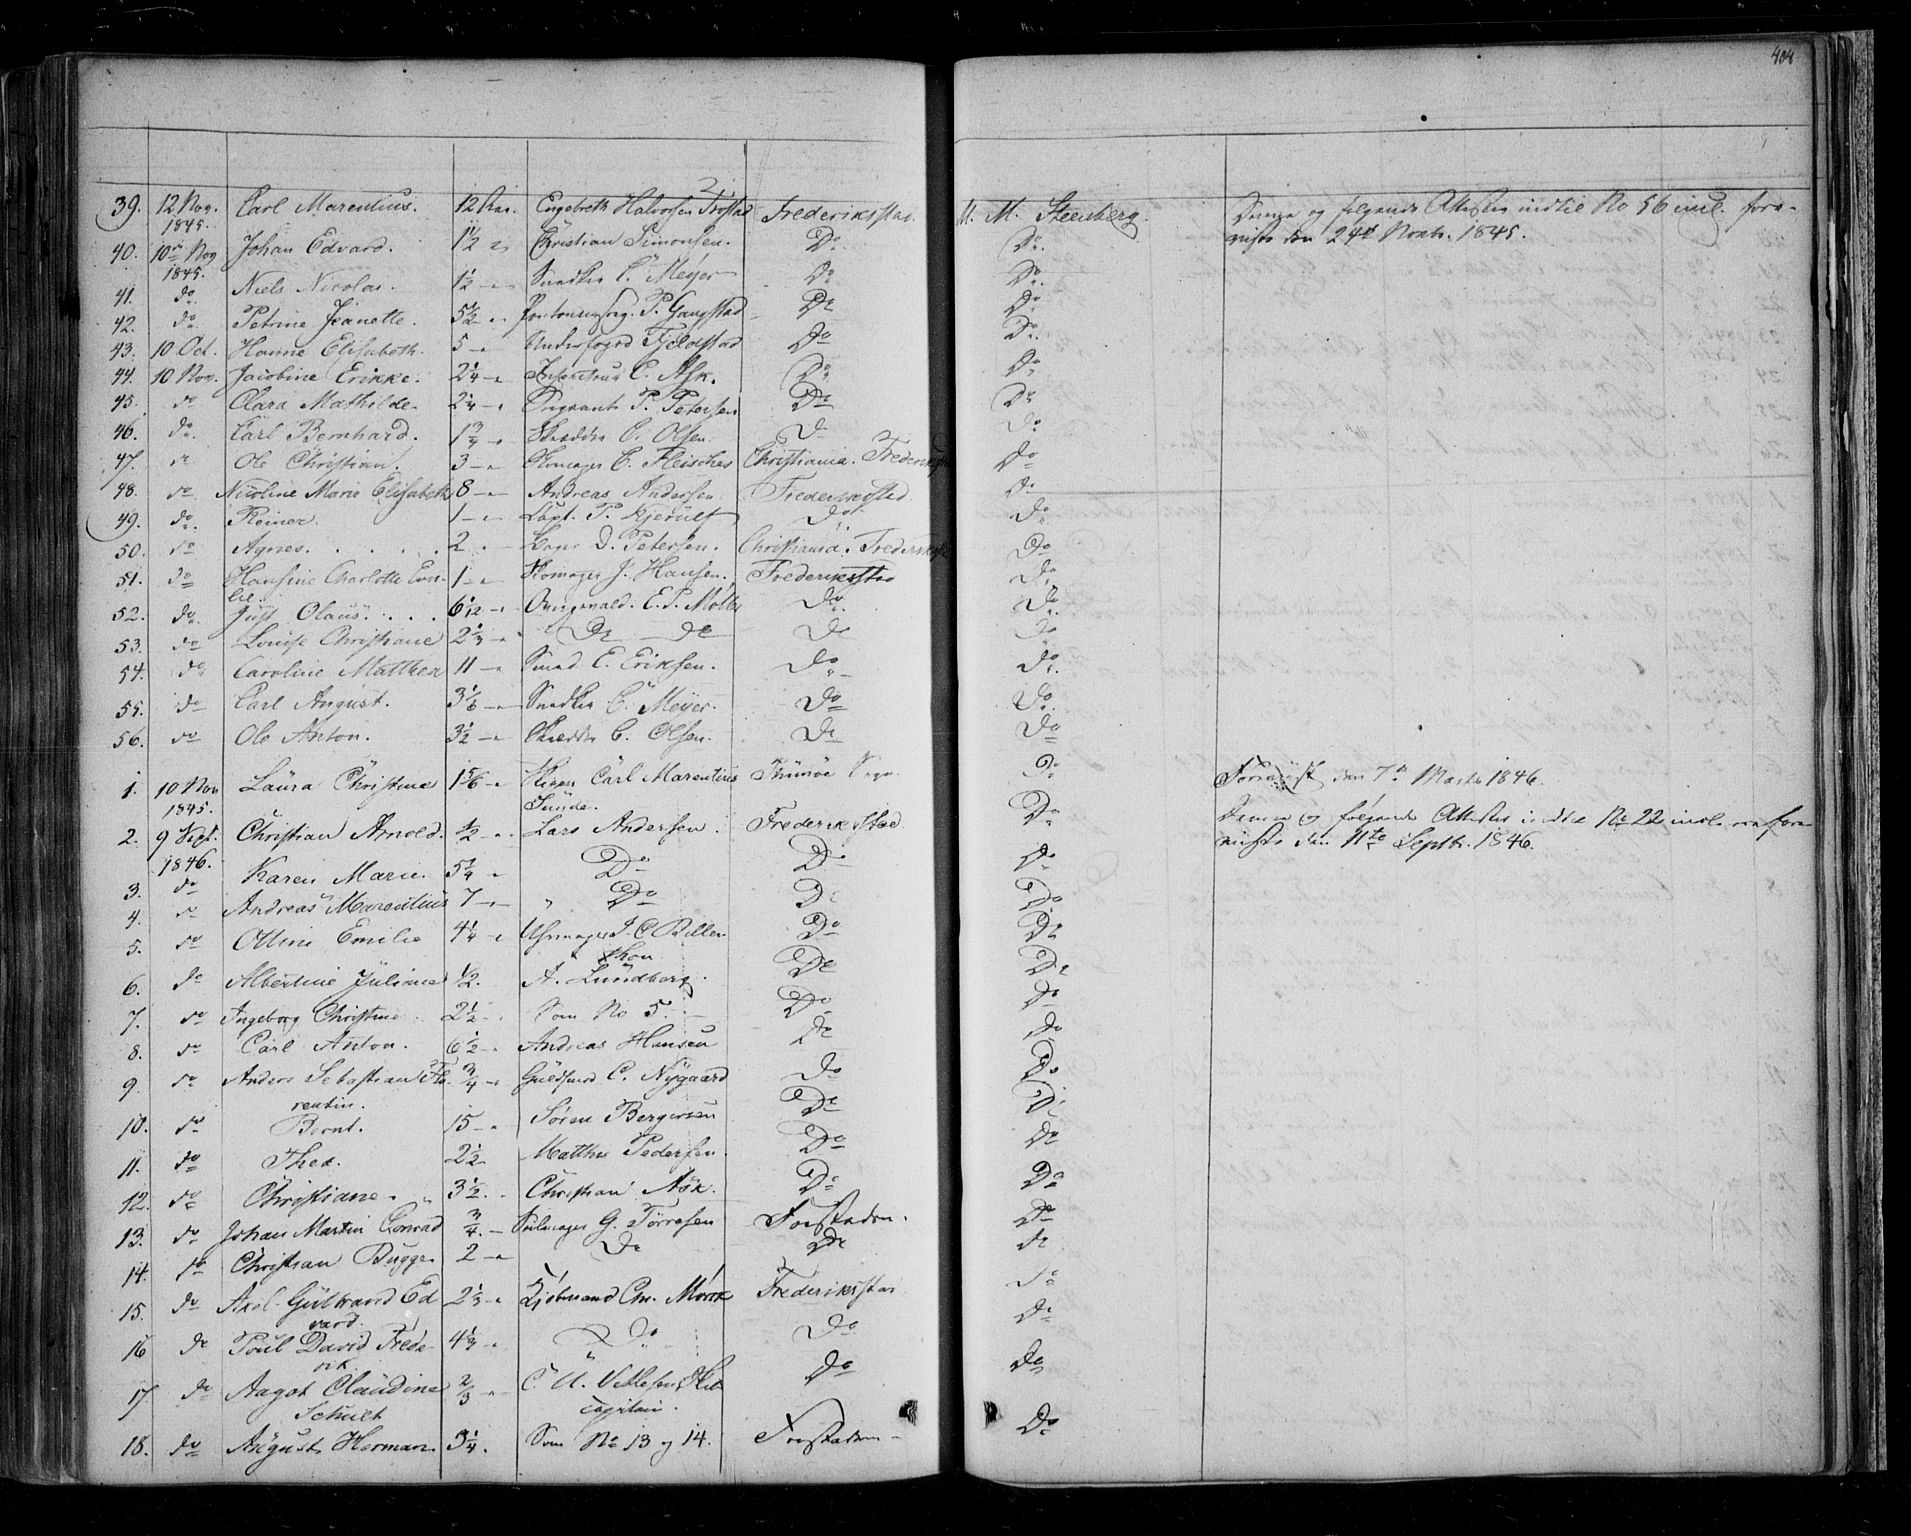 404
39. 12 Nov. 1845. Carl Marentius. 12 Aar. Engebreth Halvorsen Frederiksstad M. Steenberg. Denne og følgende Attester indtil No 56 incl. forevistes den 24de Novbr. 1845.
40. 10de Nov 1845. Johan Edvard. 1½ Christian Simonsen. Do Do
41. do Niels Nicolai. ½ Snedker C. Meyer Do Do
42. do Petrine Jeanette. 5½ P. Gangstad De Do
43. 10 Oct. Hanne Elisabeth. 5 Underfoged Fjeldstad Do Do
44. 10 Nov. Jacobine Erikke. 2¼ C. Ask. Do Do
45. do Clara Mathilde 2¼ P. Petersen Do Do
46. do Carl Bernhard. 1¾ Skrædder C. Olsen. D Do
47. do Ole Christian. 3 Skomager C. Fleischer Christiania. Frederiks Do
48. do Nicoline Marie Elisabeth 8 Andreas Andersen Frederiksstad Do
49. do Reiner. 1 Capt. P. Kjerulf Do Do
50. do Agnes. . . . . 2 D. Petersen. Christiania. Frederiks Do
51. do Hansine Charlotte Emilie. 1 Skomager J. Hansen. Frederiksstad Do
52. do Just Olaus. . . . 6 1/12 E. P. Møller Do Do
53. do Louise Christiane 2⅓ De De De Do
54. do Caroline Matthea 11 Smed E. Eriksen. Do Do
55. do Carl August. 3 Snedker C. Meyer. Do Do
56. do Ole Anton. 3½ Skrædder C. Olsen. De Do
1. 10 Nov 1845. Laura Christine 1 5/6 Carl Marentius Sunde. Thunøe Sogn Do Forevist den 7de Marts 1846.
2. 9 Sept. 1846. Christian Arnold. ½ Lars Andersen. Frederiksstad Do Denne og følgende Attester indtil No 22 incl. ere forevists den 11te Septbr. 1846.
3. do Karen Marie. Do Do Do
4. do Andreas Marentius 7 " Do De Do
5. do Ottine Emilie 4¼ Uhrmager J. C. Do De
6. do Albertine Juliane ½. A. Lundberg. De De
7. do Ingeborg Christine. 2½ Som No 5. Do Do
8. do Carl Anton. 6½ Andreas Hansen De Do
9. do Anders Sebastian Florentin. ¾ Guldsmed C. Nygaard Do Do
10. do Bernt. 15 Søren Bergersen De D
11. do Thea. 2½ Matthis Pedersen. Do De
12. do Christiane. 3½. Christian Ask. Do Do
13. do Johan Martin Conrad ¾. Seilmager G. Torresen Forstaden. Do
14. do Christian Bugge 2 De De De
15. do Axel Edvard. 2⅓ Kjøbmand Chr. Mørck Frederiksstad Do
16 do Poul David Frederik 4⅓ " Do Do Do
17. do Aagot Claudine Schult ⅔ C. U. capitain. Do Do
18. do August Herman 3¼. Som No 13 og 14. Forstaden Do